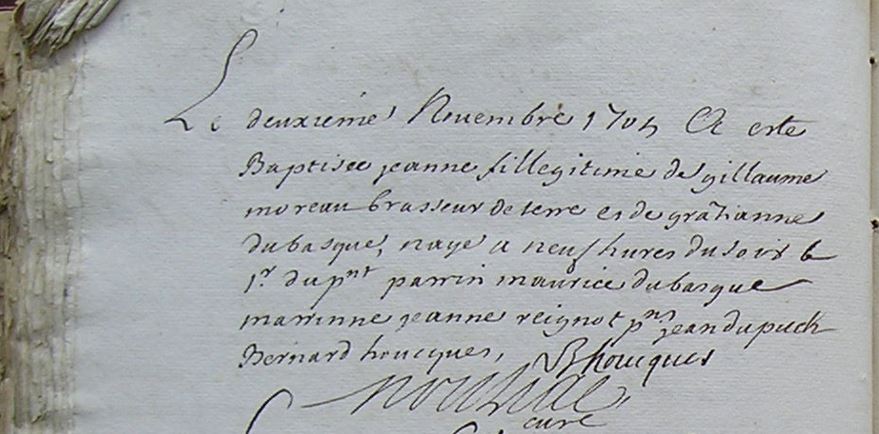 Le deuxieme Nouembre 1705 A este
Baptisee jeanne fillegitime de gillaume
moreau brasseur de terre et de gratianne
dubasque, naye a neuf hures du soir le
1r du pnt parrin maurice dubasque
marrinne jeanne reignot pns jean dupuch
Bernard houcques, Bhoucques
curé